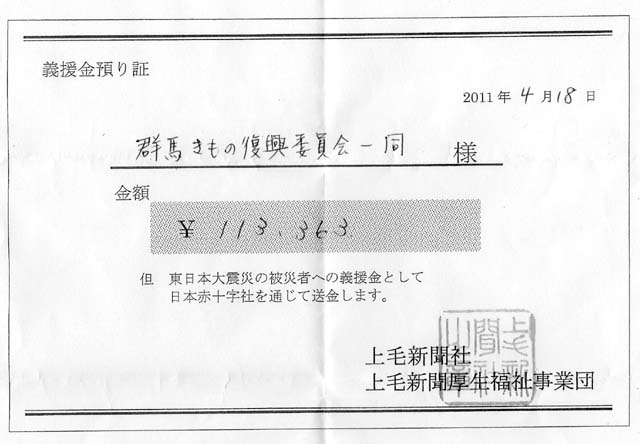 義援金預り証
2011年 4月 18日
群馬きもの復興委員会一同 様
金額
¥ 113,363
但 東日本大震災の被災者への義援金として
日本赤十字社を通じて送金します。
上毛新聞社
上毛新聞厚生福祉事業団